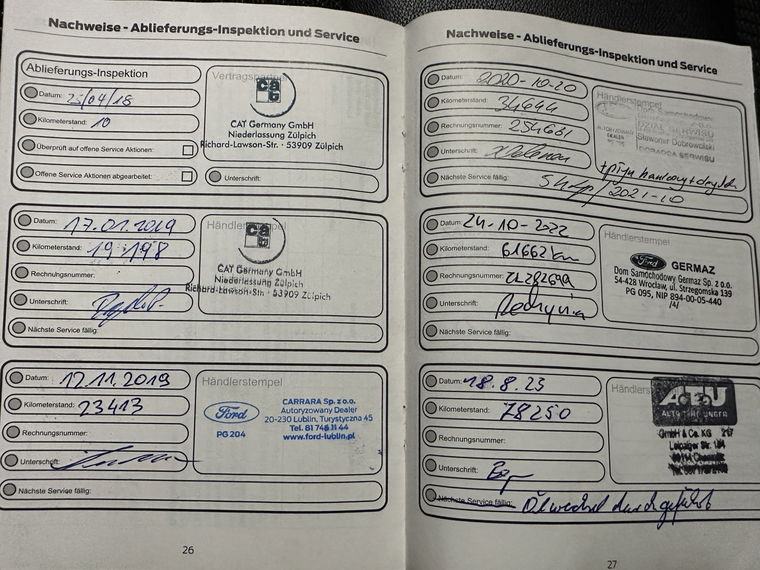 Nachweise - Ablieferungs-Inspektion und Service
Ablieferungs-Inspektion
Datum: 25/04/18
Kilometerstand: 10
Überprüft auf offene Service Aktionen:
Offene Service Aktionen abgearbeitet:
Vertragspartner
CAT
CAT Germany GmbH
Niederlassung Zülpich
Richard-Lawson-Str. · 53909 Zülpich
Unterschrift:
Datum: 17.01.2019
Kilometerstand: 19198
Rechnungsnummer:
Unterschrift:
Nächste Service fällig:
Händlerstempel
CAT
CAT Germany GmbH
Niederlassung Zülpich
Richard-Lawson-Str. · 53909 Zülpich
Datum: 12.11.2019
Kilometerstand: 23413
Rechnungsnummer:
Unterschrift:
Nächste Service fällig:
Händlerstempel
Ford
PG 204
CARRARA Sp. z o.o.
Autoryzowany Dealer
20-230 Lublin, Turystyczna 45
Tel. 81 745 11 44
www.ford-lublin.pl
26
Nachweise - Ablieferungs-Inspektion und Service
Datum: 2020-10-20
Kilometerstand: 34644
Rechnungsnummer: 254661
Unterschrift:
Nächste Service fällig: 2021-10
Händlerstempel
Dom Samochodowy
AUTORYZOWANY
DEALER
DZIAŁ SERWISU
Sławomir Dobrowolski
DORADCA SERWISU
+płyn hamulcowy
Datum: 24-10-2022
Kilometerstand: 61662 km
Rechnungsnummer:
Unterschrift:
Nächste Service fällig:
Händlerstempel
Ford GERMAZ
Dom Samochodowy Germaz Sp. z o.o.
54-428 Wrocław, ul. Strzegomska 139
PG 095, NIP 894-00-05-440
/4/
Datum: 18.8.23
Kilometerstand: 78250
Rechnungsnummer:
Unterschrift:
Nächste Service fällig: Ölwechsel durchgeführt
Händlerstempel
ATU
GmbH & Co. KG 217
Leipziger Str. 184
Chemnitz
27